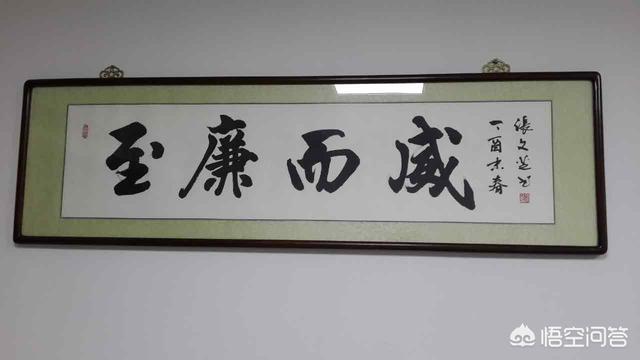 至廉而威
丁酉末春
張文 书
悟空问答